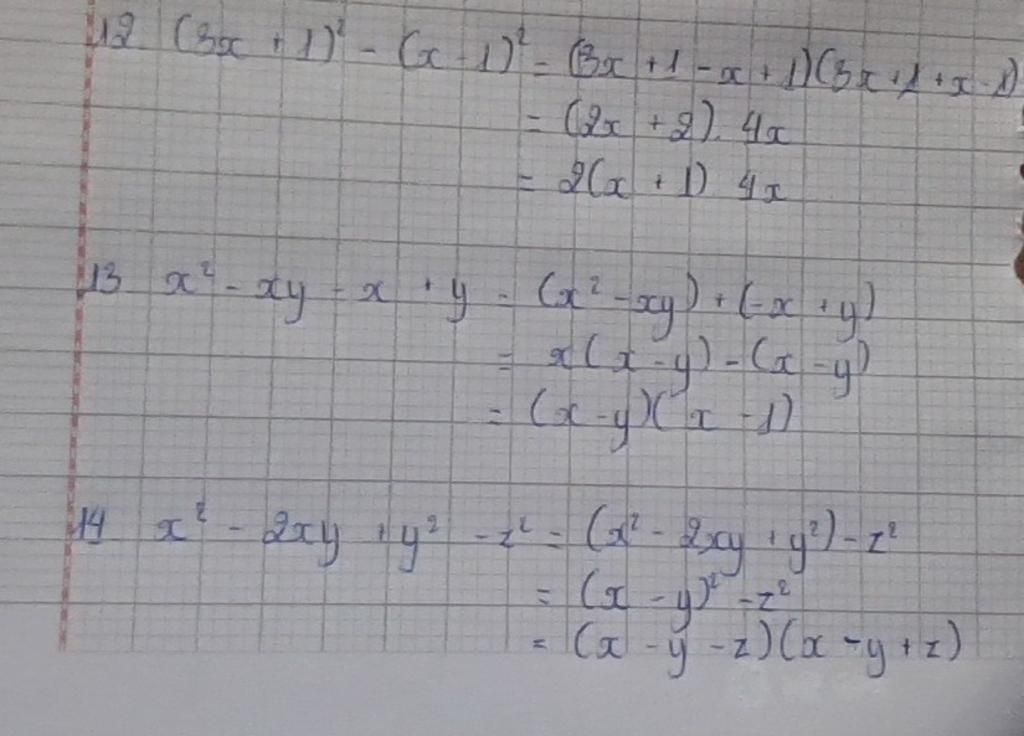 12 (3x + 1)² - (x - 1)² = (3x + 1 - x + 1)(3x + 1 + x - 1)
= (2x + 2). 4x
= 2(x + 1) 4x
13 x² - xy - x + y = (x² - xy) + (-x + y)
= x(x - y) - (x - y)
= (x - y)(x - 1)
14 x² - 2xy + y² - z² = (x² - 2xy + y²) - z²
= (x - y)² - z²
= (x - y - z)(x - y + z)